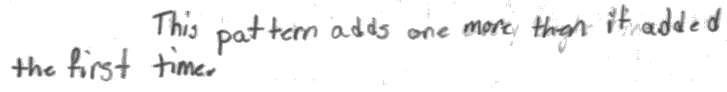 This pattern adds one more than it added
the first time.